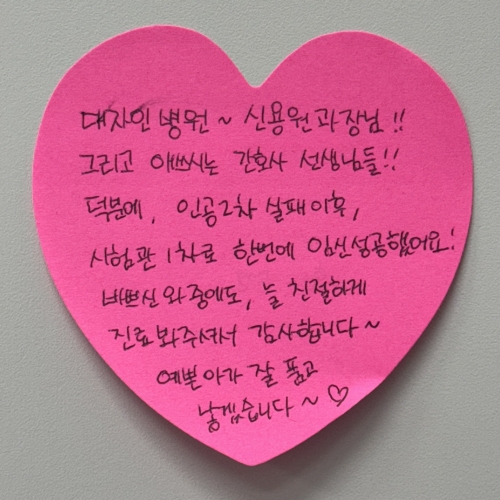 대자인 병원 ~ 신용원 과장님 !!
그리고 이쁘시는 간호사 선생님들!!
덕분에, 인공2차 실패 이후,
시험관 1차로 한번에 임신성공했어요!
바쁘신 와중에도, 늘 친절하게
진료 봐주셔서 감사합니다 ~
예쁜 아가 잘 품고
낳겠습니다 ~ ♡